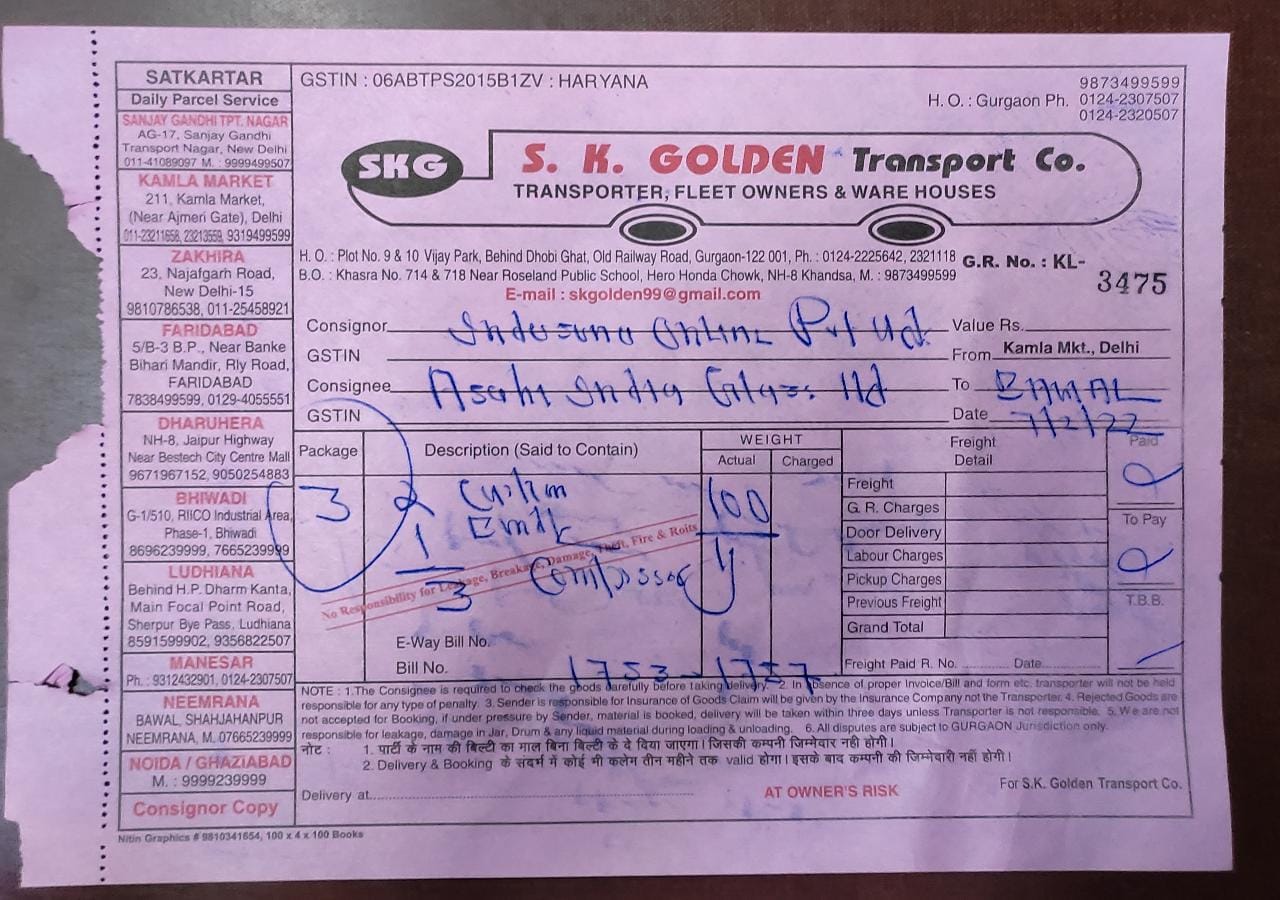 SATKARTAR
Daily Parcel Service
SANJAY GANDHI TPT. NAGAR
AG-17, Sanjay Gandhi
Transport Nagar, New Delhi
011-41089097 M. : 9999499507
KAMLA MARKET
211, Kamla Market,
(Near Ajmeri Gate), Delhi
011-23211658, 23213559, 9319499599
ZAKHIRA
23, Najafgarh Road,
New Delhi-15
9810786538, 011-25458921
FARIDABAD
5/B-3 B.P., Near Banke
Bihari Mandir, Rly Road,
FARIDABAD
7838499599, 0129-4055551
DHARUHERA
NH-8, Jaipur Highway
Near Bestech City Centre Mall
9671967152, 9050254883
BHIWADI
G-1/510, RIICO Industrial Area,
Phase-1, Bhiwadi
8696239999, 7665239999
LUDHIANA
Behind H.P. Dharm Kanta,
Main Focal Point Road,
Sherpur Bye Pass, Ludhiana
8591599902, 9356822507
MANESAR
Ph. : 9312432901, 0124-2307507
NEEMRANA
BAWAL, SHAHJAHANPUR
NEEMRANA, M. 07665239999
NOIDA / GHAZIABAD
M. : 9999239999
Consignor Copy
GSTIN : 06ABTPS2015B1ZV : HARYANA
9873499599
H. O. : Gurgaon Ph. 0124-2307507
0124-2320507
SKG
S. K. GOLDEN Transport Co.
TRANSPORTER, FLEET OWNERS & WARE HOUSES
H. O. : Plot No. 9 & 10 Vijay Park, Behind Dhobi Ghat, Old Railway Road, Gurgaon-122 001, Ph. : 0124-2225642, 2321118
B.O. : Khasra No. 714 & 718 Near Roseland Public School, Hero Honda Chowk, NH-8 Khandsa, M. : 9873499599
G.R. No. : KL- 3475
E-mail : skgolden99@gmail.com
Consignor Online Pvt Ltd. Value Rs.
GSTIN From Kamla Mkt., Delhi
Consignee Asahi India Glass. ltd To BAWAL
GSTIN Date 7/2/22
Package Description (Said to Contain) WEIGHT Actual Charged Freight Detail Paid
3 2
1
3
100
Freight
G. R. Charges
Door Delivery
Labour Charges
Pickup Charges
Previous Freight
Grand Total
To Pay
T.B.B.
No Responsibility for Leakage, Breakage, Damage, Theft, Fire & Roits
E-Way Bill No.
Bill No. 1753-1757
Freight Paid R. No. ............ Date.............
NOTE : 1.The Consignee is required to check the goods carefully before taking delivery. 2. In absence of proper Invoice/Bill and form etc. transporter will not be held
responsible for any type of penalty. 3. Sender is responsible for Insurance of Goods Claim will be given by the Insurance Company not the Transporter. 4. Rejected Goods are
not accepted for Booking, if under pressure by Sender, material is booked, delivery will be taken within three days unless Transporter is not responsible. 5. We are not
responsible for leakage, damage in Jar, Drum & any liquid material during loading & unloading. 6. All disputes are subject to GURGAON Jurisdiction only.
नोट : 1. पार्टी के नाम की बिल्टी का माल बिना बिल्टी के दे दिया जाएगा। जिसकी कम्पनी जिम्मेवार नही होगी।
2. Delivery & Booking के संदर्भ में कोई भी कलेम तीन महीने तक valid होगा। इसके बाद कम्पनी की जिम्मेदारी नहीं होगी।
Delivery at.......... AT OWNER'S RISK For S.K. Golden Transport Co.
Nitin Graphics # 9810341654, 100 x 4 x 100 Books